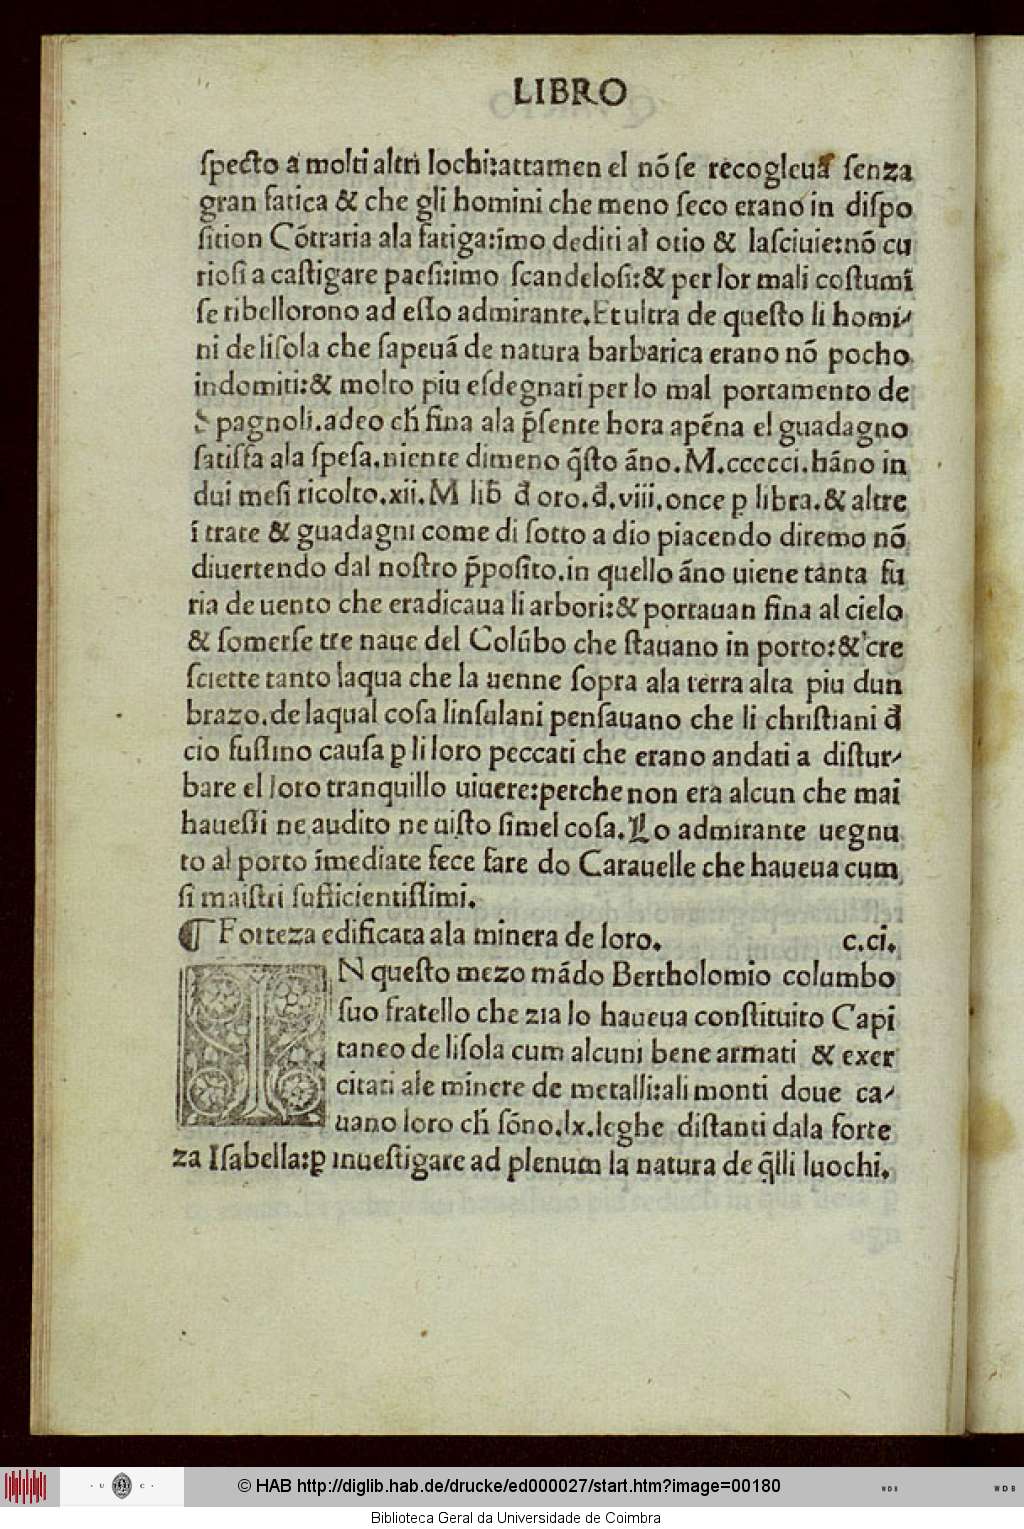 LIBRO
ſpecto a molti altri lochi:attamen el nõ ſe recogleua ſenza
gran fatica & che gli homini che meno ſeco erano in diſpo
ſition Cõtraria ala fatiga:ĩmo dediti al otio & laſciuie:nõ cu
rioſi a caſtigare paeſi:imo ſcandeloſi:& per lor mali coſtumi
ſe ribellorono ad eſſo admirante.Et ultra de queſto li homi-
ni de liſola che ſapeuã de natura barbarica erano nõ pocho
indomiti:& molto piu eſdegnati per lo mal portamento de
Spagnoli.adeo ch̃ fina ala p̃ſente hora apẽna el guadagno
ſatiſfa ala ſpeſa.niente dimeno q̃ſto ãno.M.ccccci.hãno in
dui meſi ricolto.xii.M lib̃ đ oro.đ.viii.once ꝑ libra.& altre
ĩtrate & guadagni come di ſotto a dio piacendo diremo nõ
diuertendo dal noſtro p̃poſito.in quello ãno uiene tanta fu
ria de uento che eradicaua li arbori:& portauan fina al cielo
& ſomerſe tre naue del Colũbo che ſtauano in porto:& cre
ſciette tanto laqua che la uenne ſopra ala terra alta piu dun
brazo.de laqual coſa linſulani penſauano che li chriſtiani đ
cio fuſſino cauſa ꝑ li loro peccati che erano andati a diſtur-
bare el loro tranquillo uiuere:perche non era alcun che mai
haueſſi ne audito ne uiſto ſimel coſa.Lo admirante uegnu
to al porto ĩmediate fece fare do Carauelle che haueua cum
ſi maiſtri ſufficientiſſimi.
¶ Forteza edificata ala minera de loro. c.ci.
IN queſto mezo mãdo Bertholomio columbo
ſuo fratello che zia lo haueua conſtituito Capi
taneo de liſola cum alcuni bene armati & exer
citati ale minere de metalli:ali monti doue ca-
uano loro ch̃ ſõno.lx.leghe diſtanti dala forte
za Iſabella:ꝑ inueſtigare ad plenum la natura de q̃lli luochi.
U C
© HAB http://diglib.hab.de/drucke/ed000027/start.htm?image=00180
WDB
WDB
Biblioteca Geral da Universidade de Coimbra